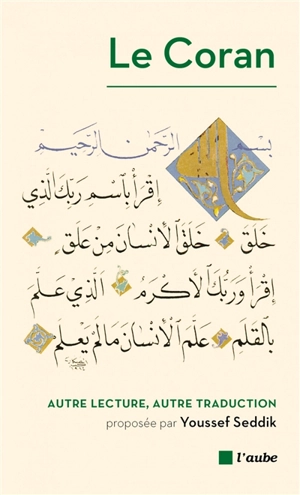 Le Coran
بِسْمِ اللهِ الرَّحْمٰنِ الرَّحِيْمِ
اِقْرَأْ بِاسْمِ رَبِّكَ الَّذِي
خَلَقَ خَلَقَ الْاِنْسَانَ مِنْ عَلَقٍ
اِقْرَأْ وَرَبُّكَ الْاَكْرَمُ الَّذِي عَلَّمَ
بِالْقَلَمِ عَلَّمَ الْاِنْسَانَ مَا لَمْ يَعْلَمْ
AUTRE LECTURE, AUTRE TRADUCTION
proposée par Youssef Seddik
l'aube